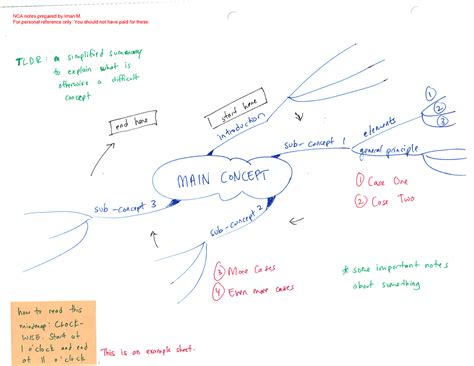 NCA notes prepared by Iman M.
For personal reference only. You should not have paid for these.
TLDR: a simplified summary
to explain what is
otherwise a difficult
concept
end here
start here
introduction
sub-concept 1
elements
1
2
3
general principle
MAIN CONCEPT
1 Case One
2 Case Two
sub-concept 3
sub-concept 2
3 More Cases
4 Even more cases
* some important notes
about something
how to read this
mindmap: CLOCK-
WISE. Start at
1 o'clock and end
at 11 o'clock
This is an example sheet.